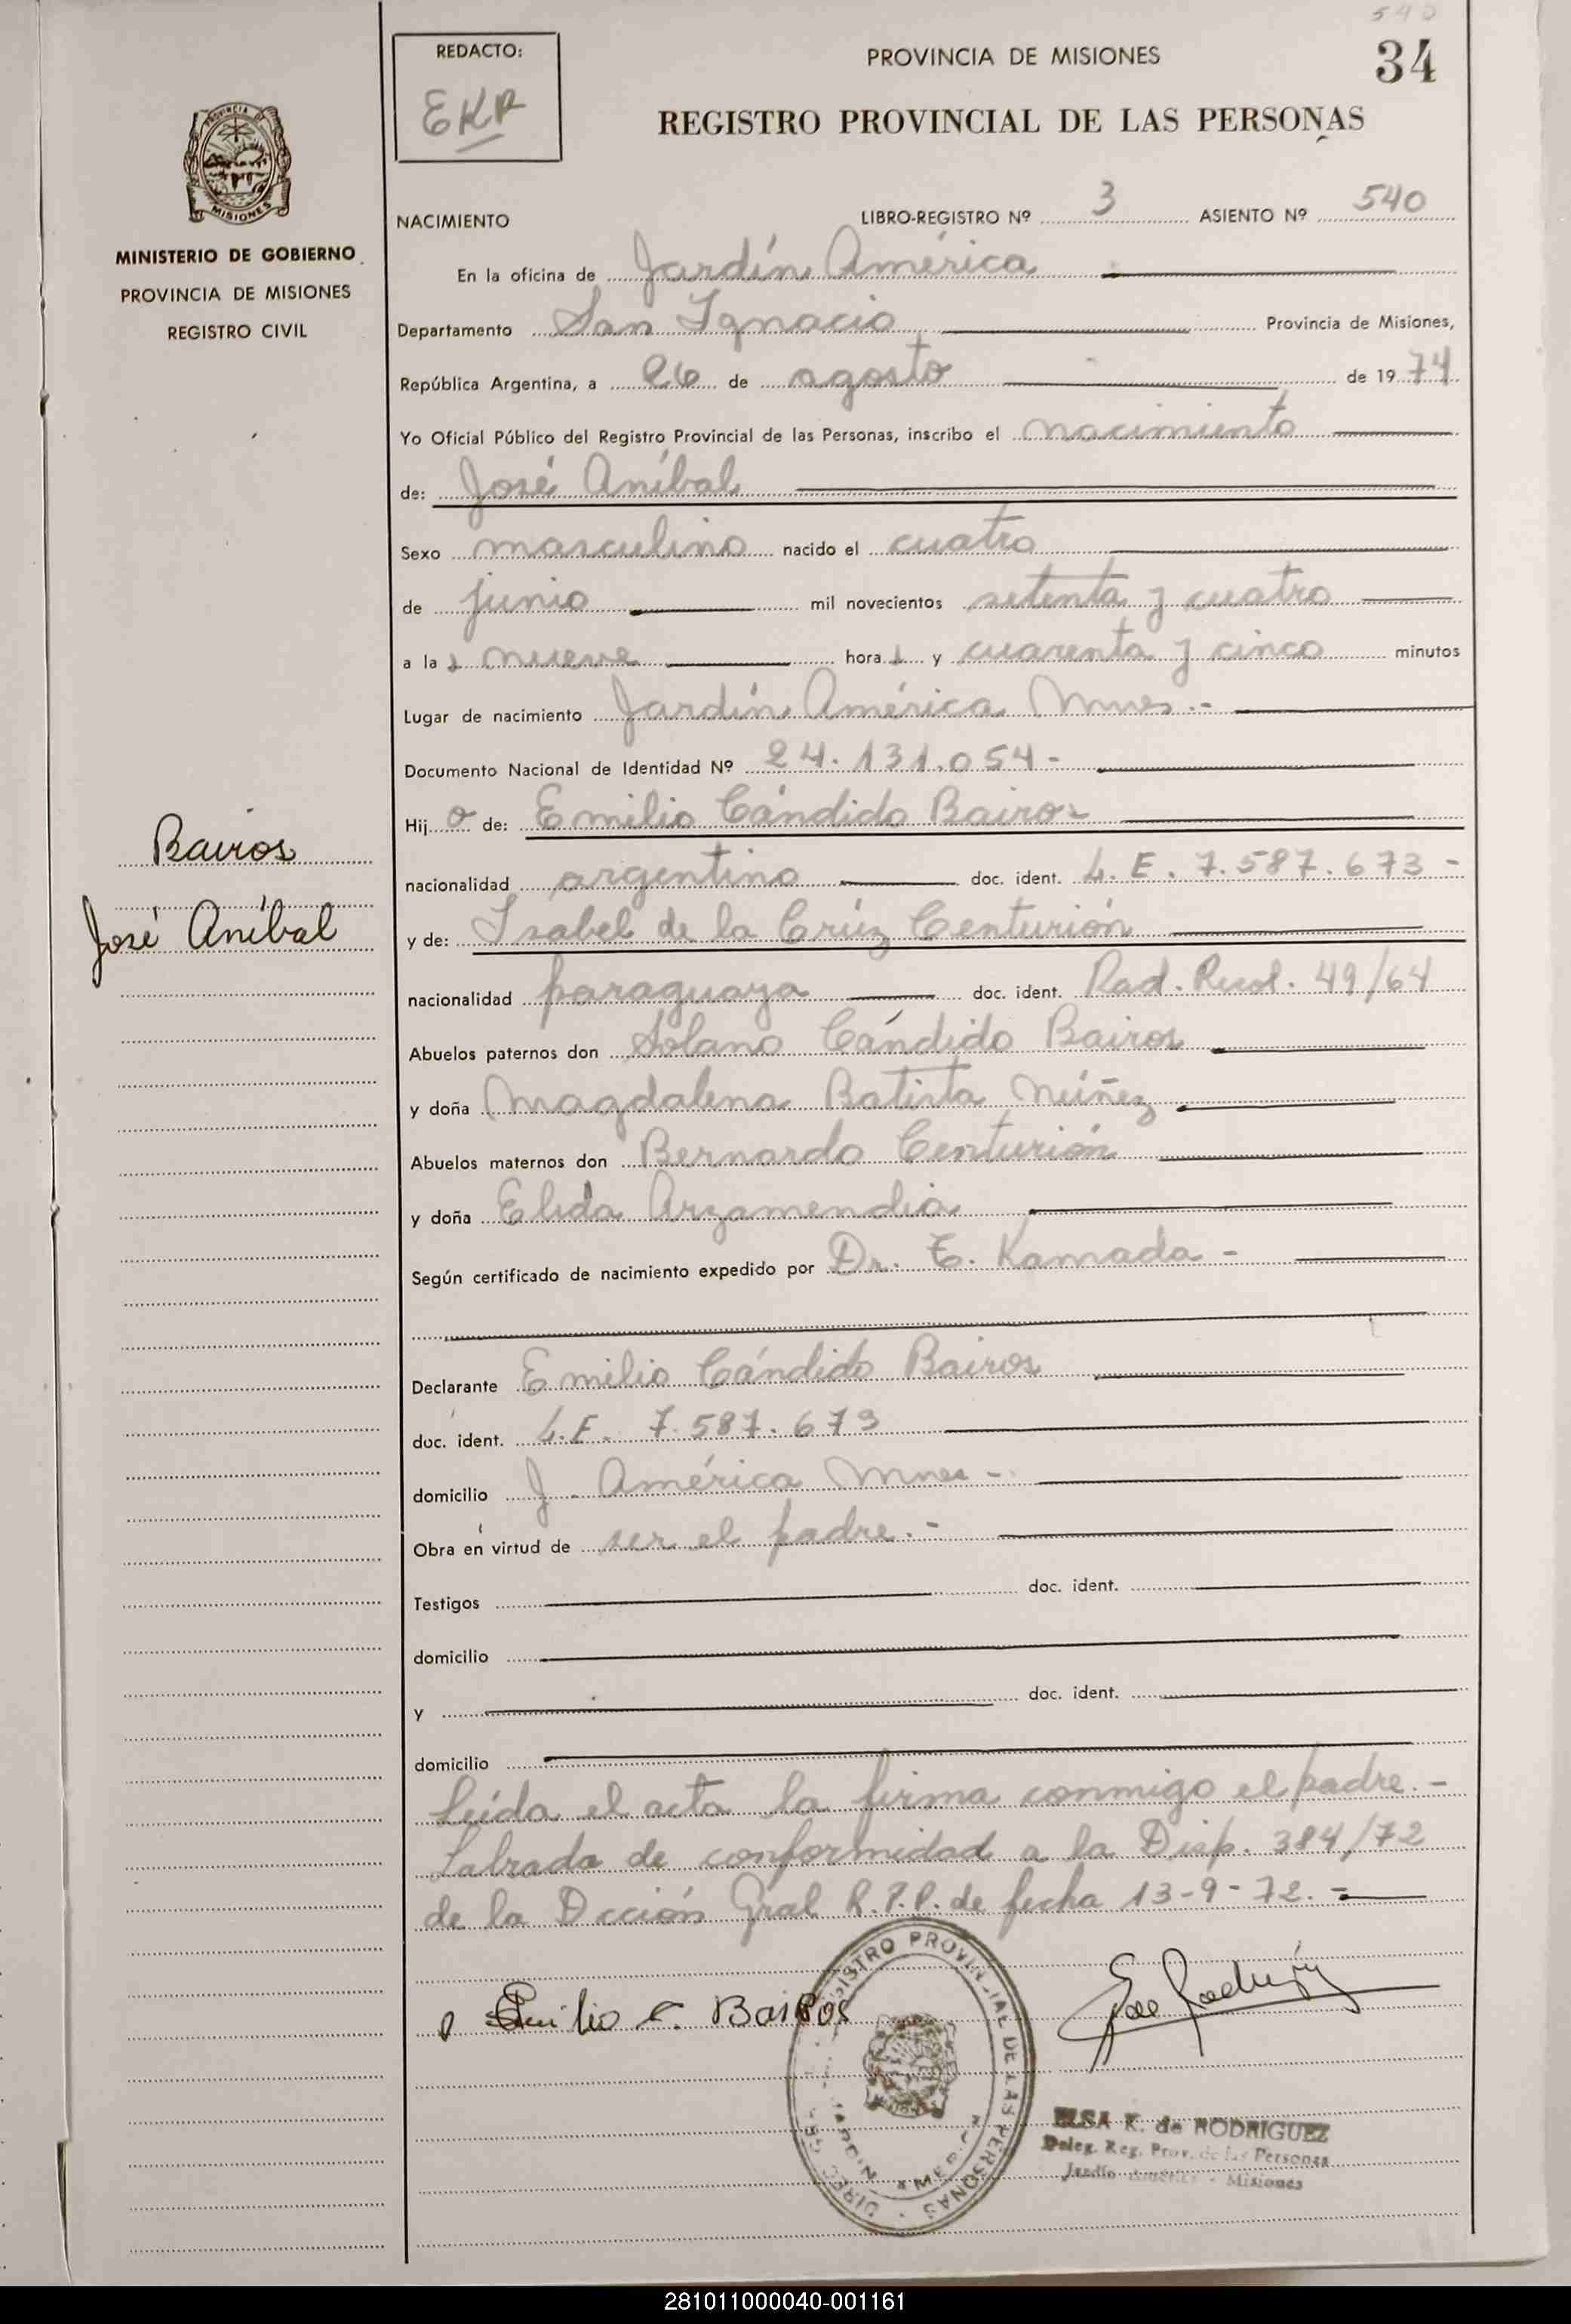 540
34
REDACTO:
EKR
PROVINCIA DE MISIONES
REGISTRO PROVINCIAL DE LAS PERSONAS
PROVINCIA
MISIONES
MINISTERIO DE GOBIERNO
PROVINCIA DE MISIONES
REGISTRO CIVIL
NACIMIENTO LIBRO-REGISTRO Nº 3 ASIENTO Nº 540
En la oficina de Jardín América
Departamento San Ignacio Provincia de Misiones,
República Argentina, a 26 de agosto de 1974
Yo Oficial Público del Registro Provincial de las Personas, inscribo el nacimiento
de: José Aníbal
Sexo masculino nacido el cuatro
de junio mil novecientos setenta y cuatro
a las nueve horas y cuarenta y cinco minutos
Lugar de nacimiento Jardín América Mnes.-
Documento Nacional de Identidad Nº 24.131.054-
Hijo de: Emilio Cándido Bairos
Bairos
José Aníbal
nacionalidad argentino doc. ident. L.E. 7.587.673-
y de: Isabel de la Crúz Centurión
nacionalidad paraguaya doc. ident. Rad. Resol. 49/64
Abuelos paternos don Solano Cándido Bairos
y doña Magdalena Batista Núñez
Abuelos maternos don Bernardo Centurión
y doña Elida Arzamendia
Según certificado de nacimiento expedido por Dr. E. Kamada-
Declarante Emilio Cándido Bairos
doc. ident. L.E. 7.587.673
domicilio J. América Mnes-
Obra en virtud de ser el padre.-
Testigos doc. ident.
domicilio
y doc. ident.
domicilio
Leída el acta la firma conmigo el padre.-
Labrada de conformidad a la Disp. 384/72
de la Dcción Gral R.P.P. de fecha 13-9-72.-
Emilio C. Bairos
REGISTRO PROVINCIAL DE LAS PERSONAS
JARDIN AMERICA
ELSA K. de RODRIGUEZ
Deleg. Reg. Prov. de las Personas
Jardín América - Misiones
281011000040-001161